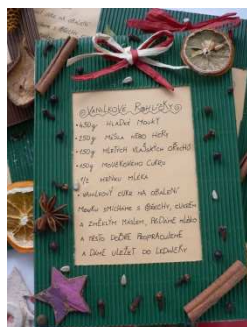 VANILKOVÉ ROHLÍČKY
• 450g HLADKÉ MOUKY
• 250g MÁSLA NEBO HERY
• 150g MLETÝCH VLAŠSKÝCH OŘECHŮ
• 150g MOUČKOVÉHO CUKRU
• 1/2 HRNKU MLÉKA
• VANILKOVÝ CUKR NA OBALENÍ
MOUKU SMÍCHÁME S OŘECHY, CUKREM
A ZMĚKLÝM MÁSLEM, PŘIDÁME MLÉKO
A TĚSTO DOBŘE PROPRACUJEME
A DÁME ULEŽET DO LEDNIČKY